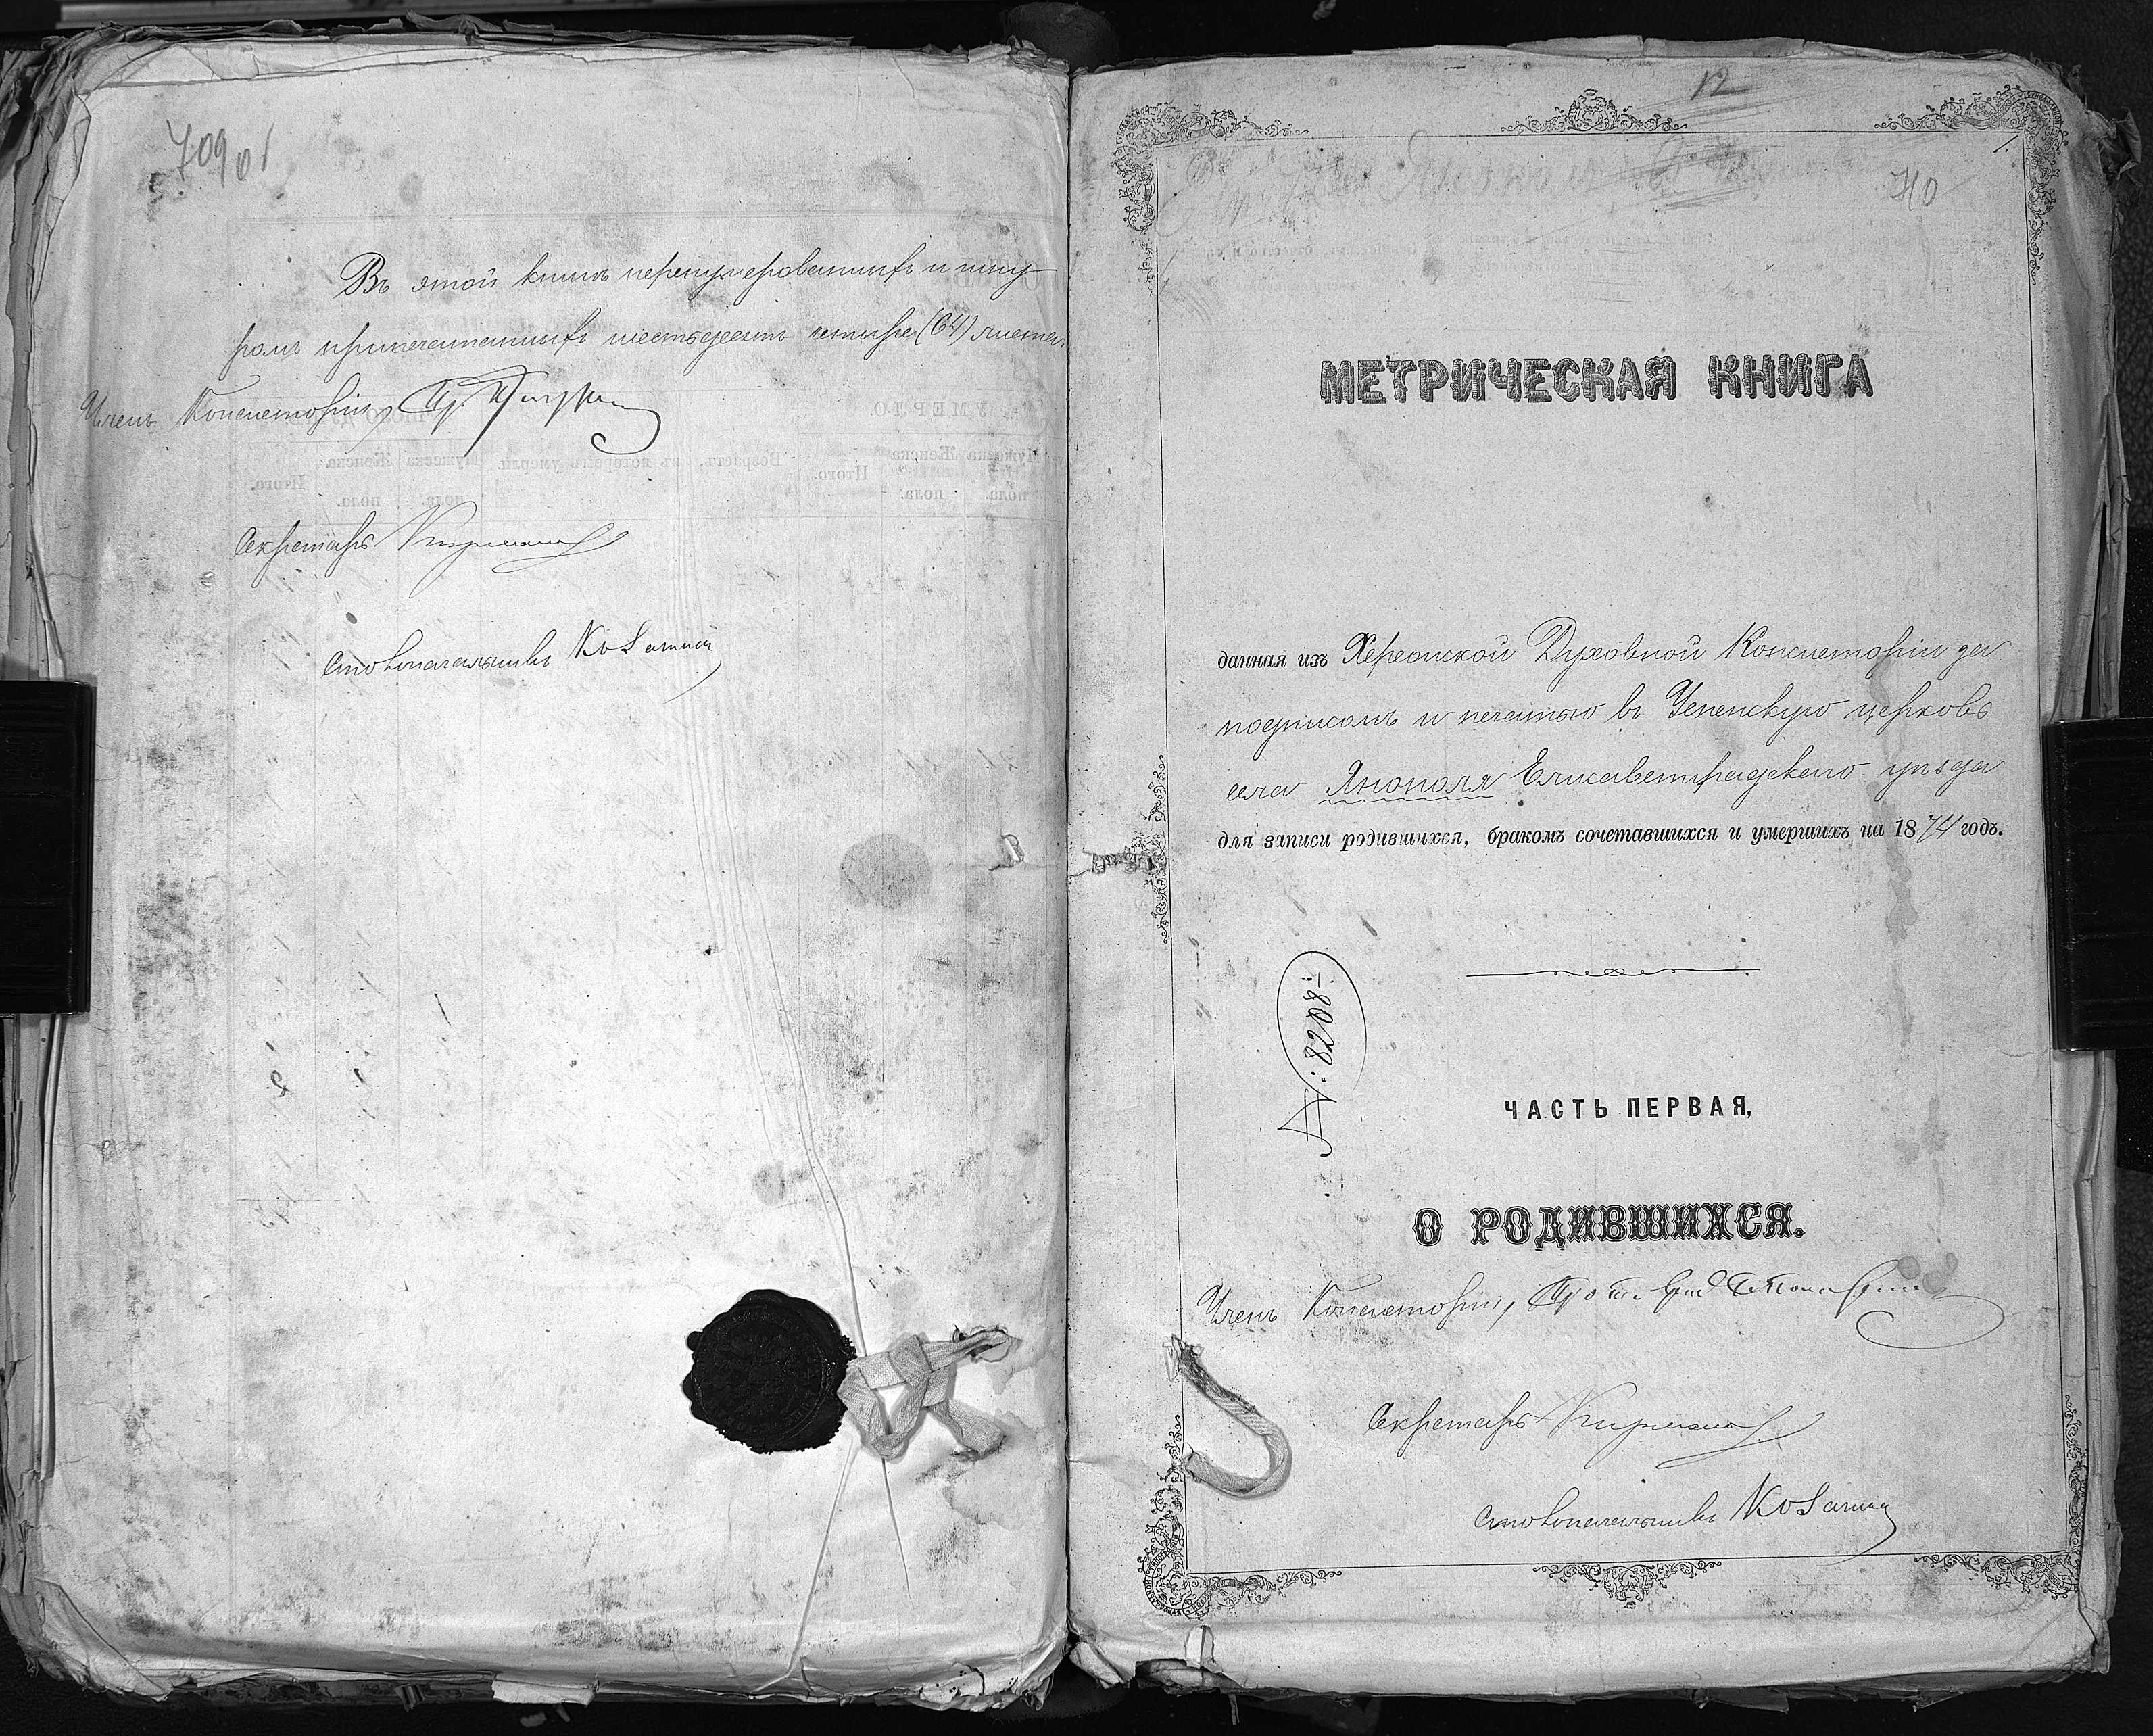 709 об
Въ этой книгѣ перенумерованныхъ и шну
ромъ припечатанныхъ шестьдесятъ четыре (64) листа.
Членъ Консисторіи,
Секретарь
Столоначальникъ
12
710
МЕТРИЧЕСКАЯ КНИГА
данная изъ Херсонской Духовной Консисторіи за
подписомъ и печатью въ Успенскую церковь
села Янополя Елисаветградскаго уѣзда
для записи родившихся, бракомъ сочетавшихся и умершихъ на 1874 годъ.
№: 8208:
ЧАСТЬ ПЕРВАЯ,
О РОДИВШИХСЯ.
Членъ Консисторіи,
Секретарь
Столоначальникъ